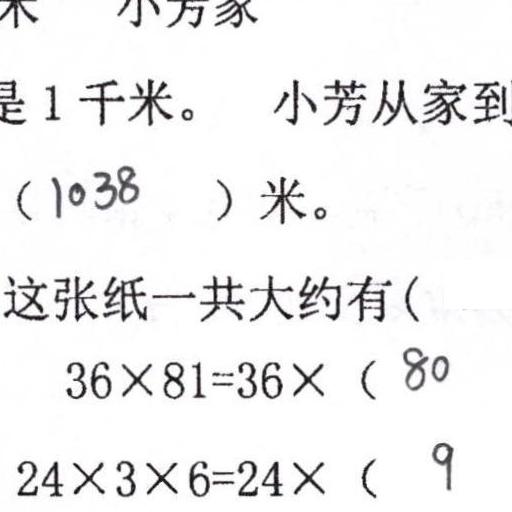 米 小芳家
是1千米。 小芳从家到
（1038 ）米。
这张纸一共大约有(
36×81=36×（80
24×3×6=24×（ 9